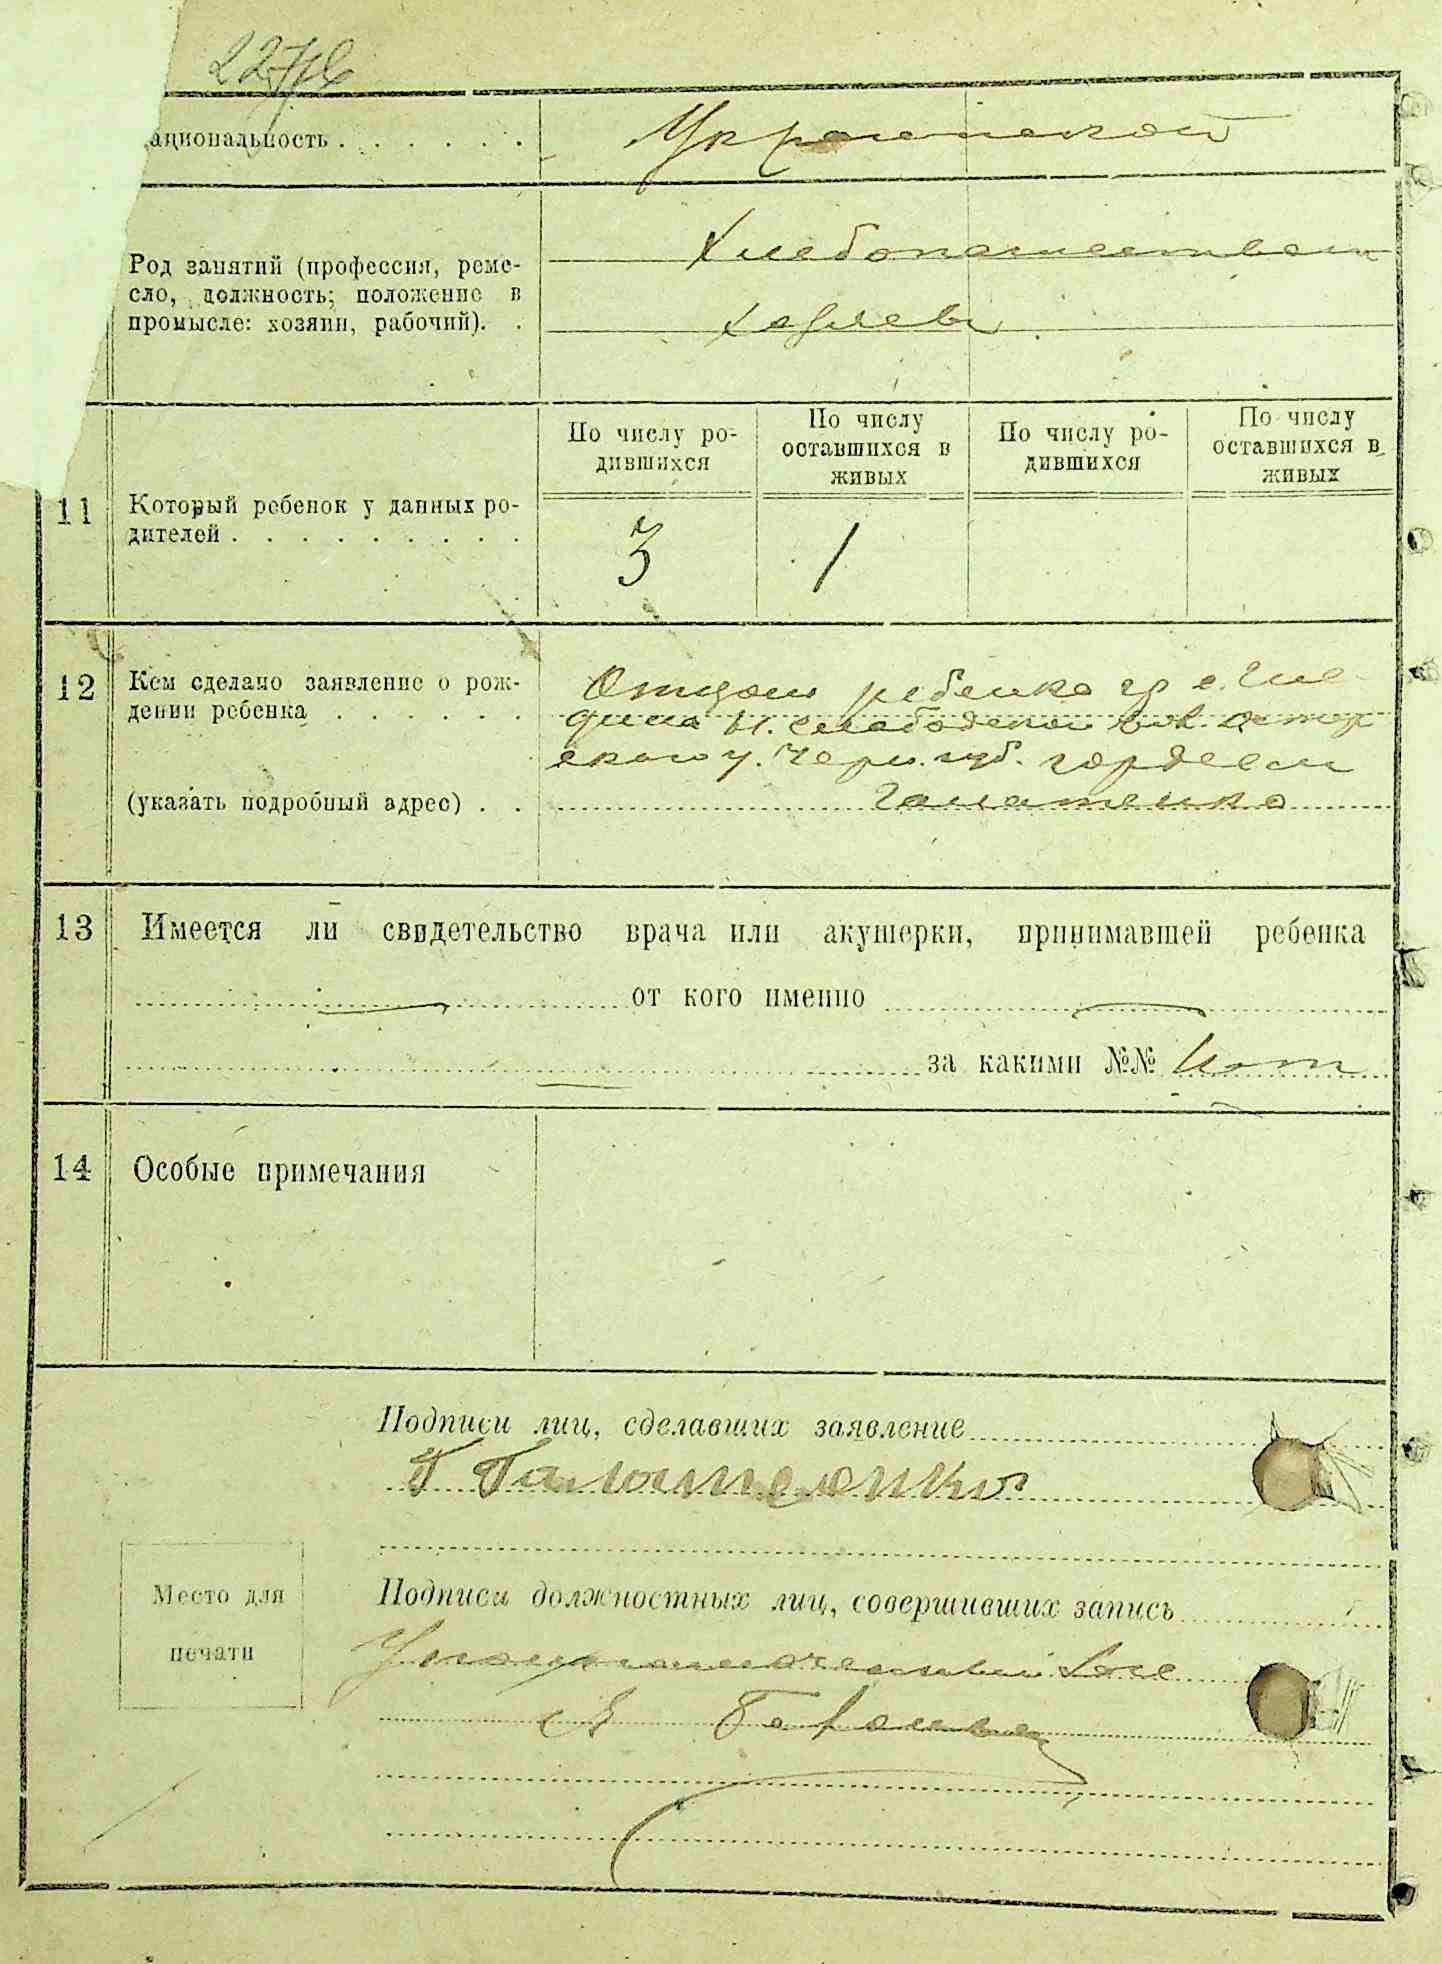 ациональность . . . . . .
Украинской
Род занятий (профессия, реме-
сло, должность; положение в
промысле: хозяин, рабочий). .
Хлебопашеством
хозяева
По числу ро-
дившихся
По числу
оставшихся в
живых
По числу ро-
дившихся
По числу
оставшихся в
живых
11 Который ребенок у данных ро-
дителей . . . . . . . . .
3 1
12 Кем сделано заявление о рож-
дении ребенка . . . . . .
(указать подробный адрес) . .
Отцом ребенка гр с.
слободской вол. Остер
ского у. Черн. губ. Гордеем
13 Имеется ли свидетельство врача или акушерки, принимавшей ребенка
от кого именно
за какими №№ Нет
14 Особые примечания
Подписи лиц, сделавших заявление
Г
Место для
печати
Подписи должностных лиц, совершивших запись